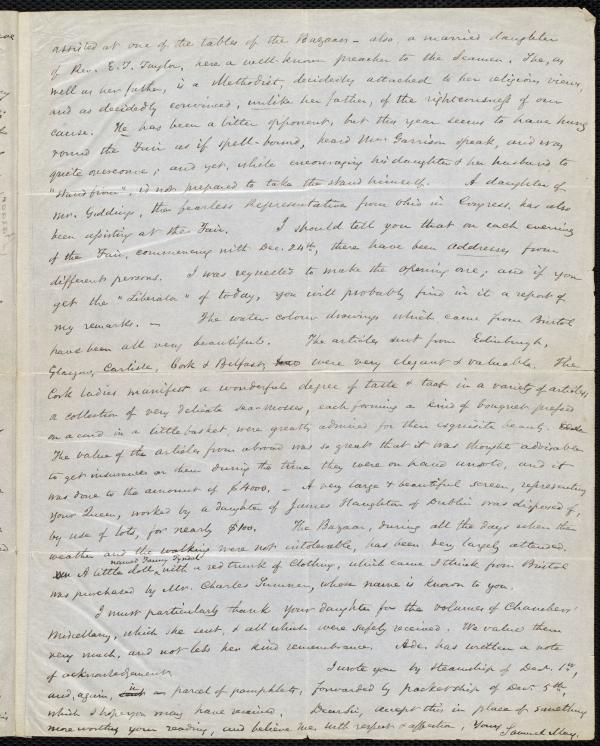 assisted at one of the tables of the Bazaar – also, a married daughter
of Rev. E. T. Taylor, here a well-known preacher to the Seamen. She, as
well as her father, is a Methodist, decidedly attached to her religious views,
and as decidedly convinced, unlike her father, of the righteousness of our
cause. He has been a bitter opponent, but this year seems to have hung
round the Fair as if spell-bound, heard Mr. Garrison speak, and was
quite overcome; and yet, while encouraging his daughter & her husband to
"stand from", is not prepared to take the stand himself. A daughter of
Mr. Giddings, the fearless Representative from Ohio in Congress, has also
been assisting at the Fair. I should tell you that on each evening
of the Fair, commencing with Dec. 24th, there have been addresses from
different persons. I was requested to make the opening one; and if you
get the "Liberator" of today, you will probably find in it a report of
my remarks. – The water-colour drawings which came from Bristol
have been all very beautiful. The articles sent from Edinburgh,
Glasgow, Carlisle, Cork & Belfast, were very elegant & valuable. The
Cork ladies manifest a wonderful degree of taste & tact in a variety of articles;
a collection of very delicate sea-mosses, each forming a kind of bouquet, pressed
on a card in a little basket, were greatly admired for their exquisite beauty.
The value of the articles from abroad was so great that it was thought advisable
to get insurance on them during the time they were on hand unsold, and it
was done to the amount of $4000. – A very large & beautiful screen, representing
your Queen, worked by a daughter of James Haughton of Dublin was disposed of,
by use of lots, for nearly $100. The Bazaar, during all the days when the
weather and the walking were not intolerable, has been very largely attended.
A little doll, named Fanny Tyndall with a red trunk of Clothing, which came I think from Bristol
was purchased by Mr. Charles Sumner, whose name is known to you.
I must particularly thank your daughter for the volumes of Chambers'
Miscellany, which she sent, & all which were safely received. We value them
very much, and not less her kind remembrance. Ade. has written a note
of acknowledgement. I wrote you by steamship of Dec. 1st,
and, again, in a parcel of pamphlets, forwarded by packet ship of Dec. 5th,
which I hope you may have received. Dear Sir, accept this in place of something
more worthy your reading, and believe me, with respect & affection, Yours
Samuel May.